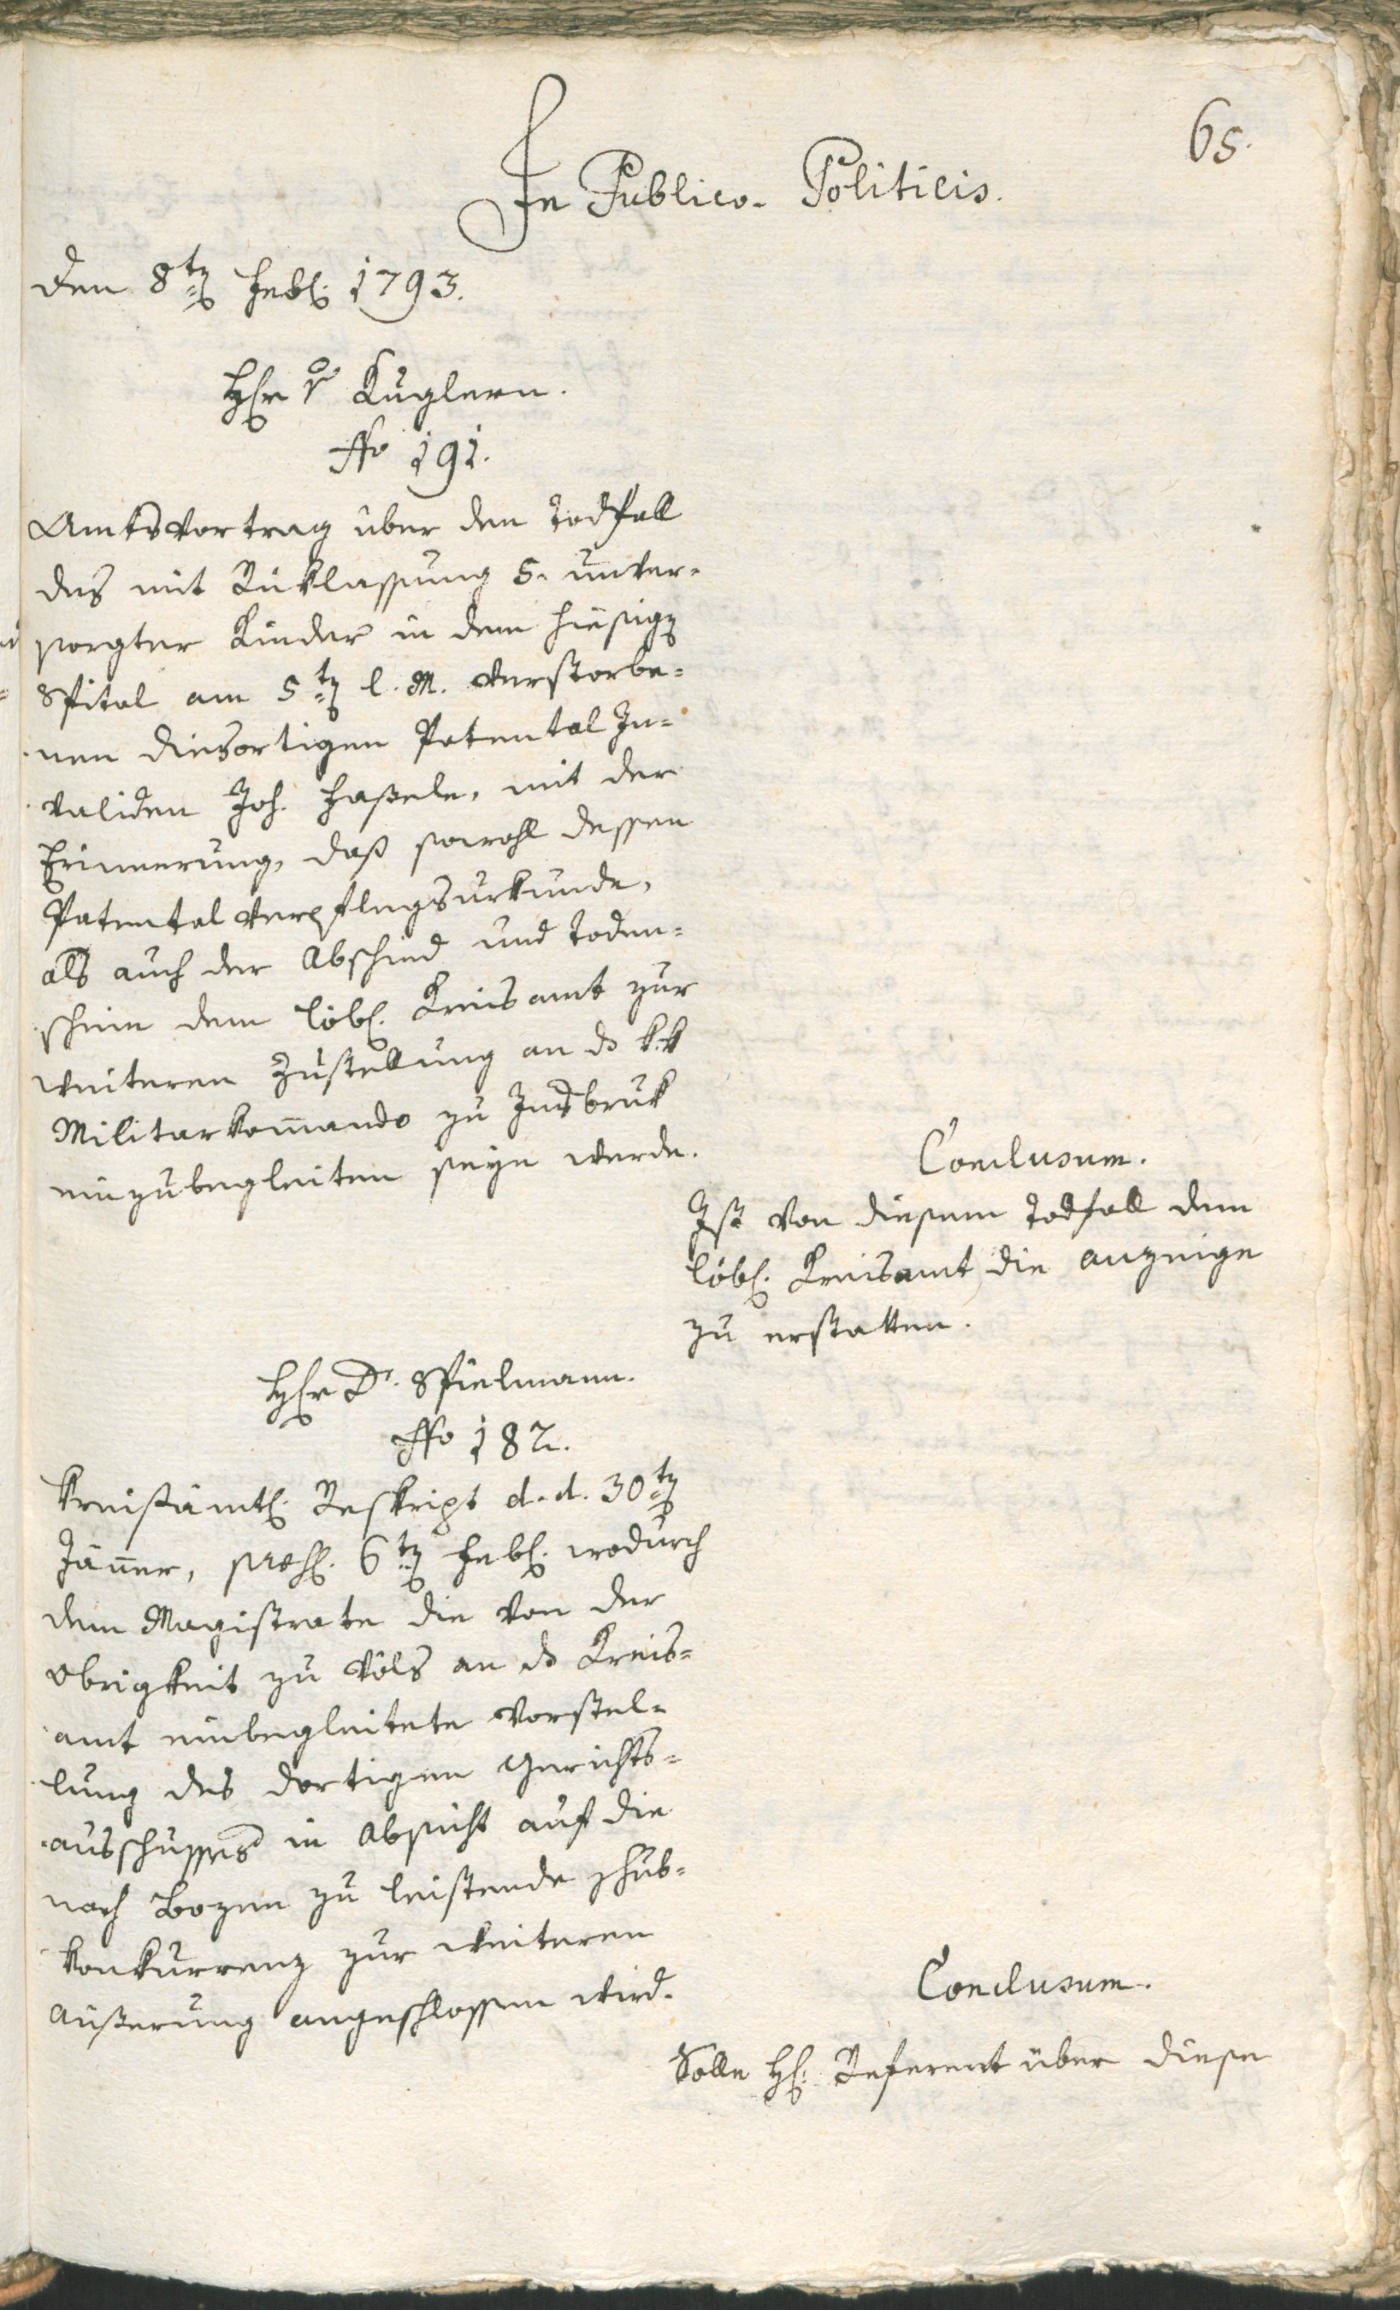 65.
In Publico-Politicis.
den 8ten Febr. 1793.
Herr v Kuglern.
No 191.
Amtsvortrag über den Todfall
des mit Rüklassung 5. unver-
sorgter Kinder in dem hiesigen
Spital am 5ten l. M. verstorbe-
nen diesortigen Patental In-
validen Joh. Haßele, mit der
Erinnerung, daß sowohl dessen
Patental Verpflegsurkunde,
als auch der Abschied und Toden-
schein dem löbl. Kreisamt zur
weiteren Zustellung an das k.k
Militarkommando zu Insbruk
einzubegleiten seyn werde.
Conclusum.
Ist von diesem Todfall dem
löbl. Kreisamt die anzeige
zu erstatten.
Herr Dr. Spielmann.
No 182.
Kreisämtl. Reskript d. d. 30ten
Jänner, præs. 6ten Febr. wodurch
dem Magistrate die von der
Obrigkeit zu Völs an das Kreis-
amt einbegleitete Vorstel-
lung des dortigen Gerichts-
ausschusses in Absicht auf die
nach Bozen zu leistende Schub-
konkurrenz zur weiteren
Äußerung angeschlossen wird.
Conclusum.
Solle H. Referent über diese